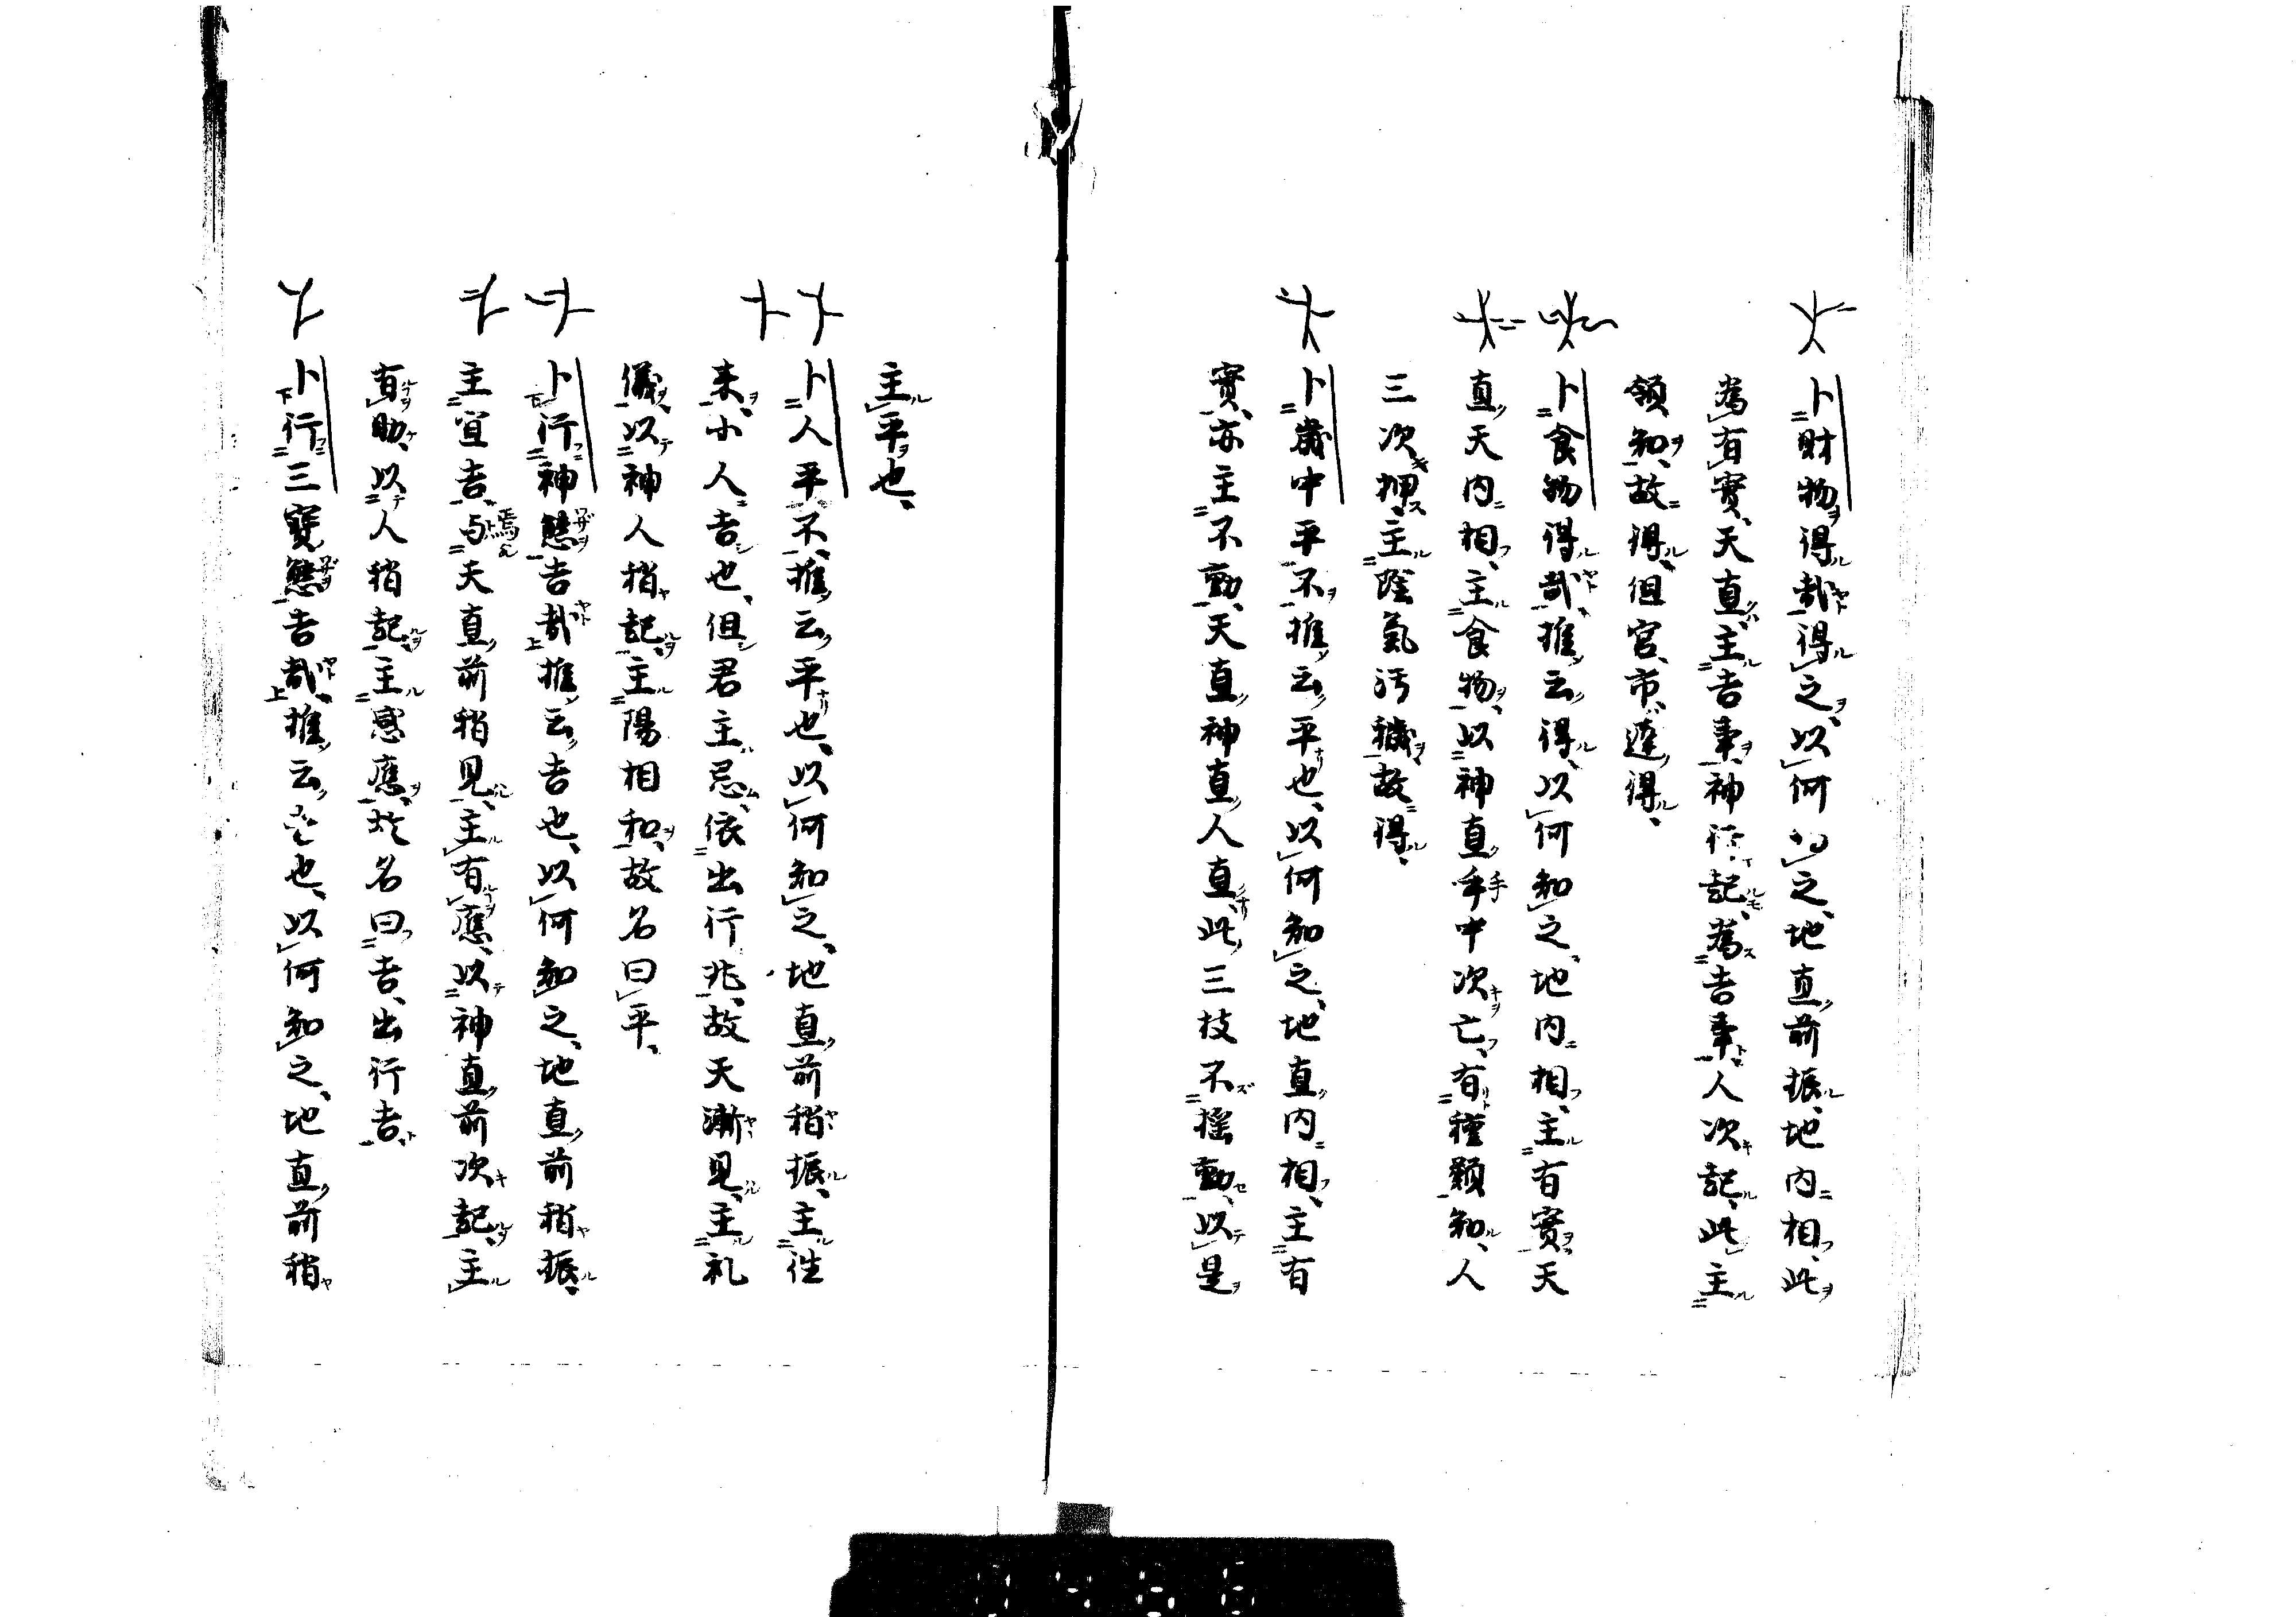 卜財物得哉得之以何知之地直前振地内相此
為有實天直主吉事神行記為吉事人次記此主
領知故得但宮市遠得
卜食物得哉推云得以何知之地内相主有實天
直天内相主食物以神直手中次亡有種類知人
三次押主陰氣汚穢故得
卜歳中平不推云平也以何知之地直内相主有
實亦主不動天直神直人直此三技不揺動以是
主平也
卜人平不推云平也以何知之地直前稍振主往
来小人吉也但君主忌依出行兆故天漸見主礼
儀以神人稍記主陽相和故名曰平
卜行神態吉哉推云吉也以何知之地直前稍振
主宜吉与天直前稍見主有應以神直前次記主
有助以人稍記主感應於名曰吉出行吉
卜行三寳態吉哉推云也以何知之地直前稍